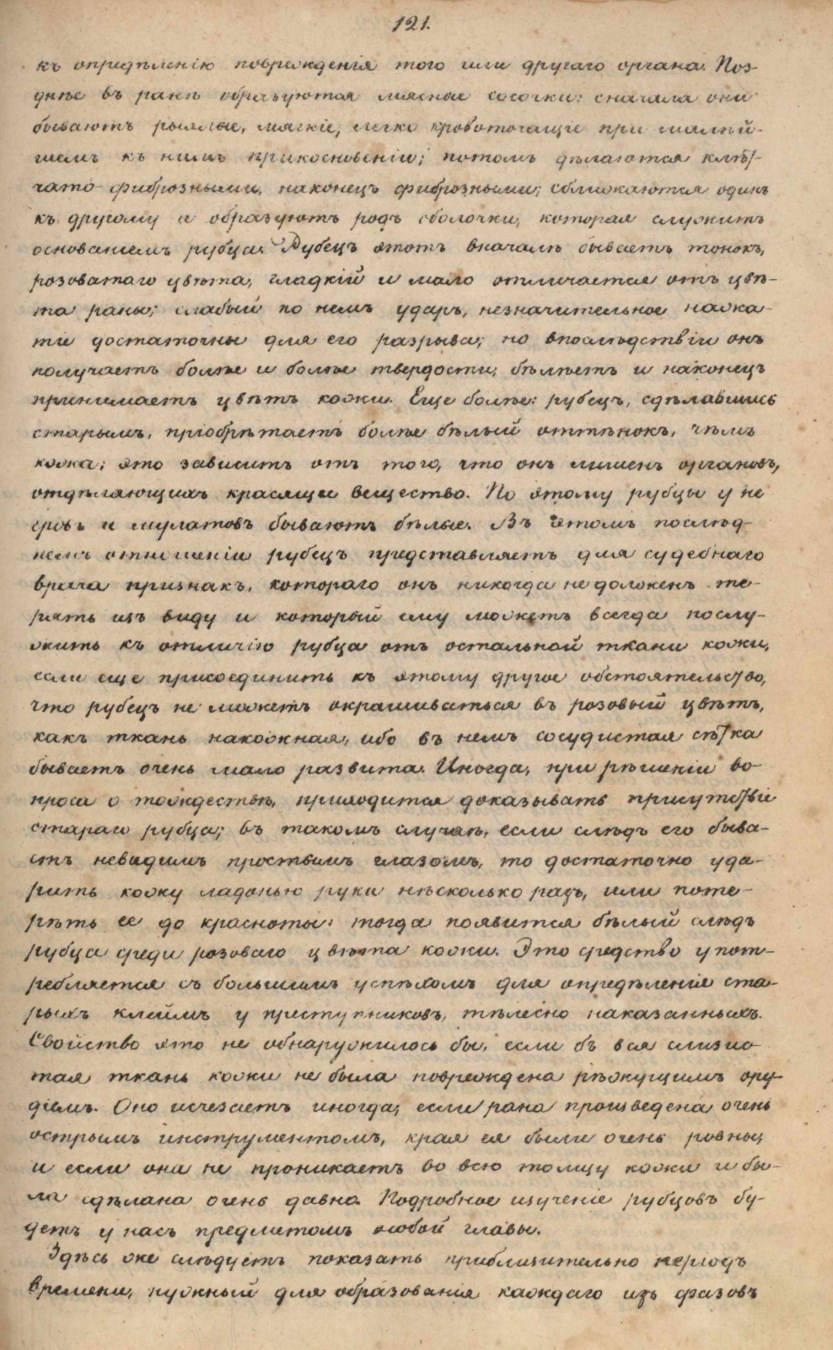 121.
къ опредѣленію поврежденія того или другаго органа. Поз-
днѣе въ ранѣ образуются мясные сосочки: сначала они
бываютъ рыхлые, мягкіе, легко кровоточащіе при малѣй-
шемъ къ нимъ прикосновеніи; потомъ дѣлаются клѣт-
чато-фиброзными, наконецъ фиброзными; сближаются одинъ
къ другому и образуютъ родъ оболочки, которая служитъ
основаніемъ рубца. Рубецъ этотъ вначалѣ бываетъ тонокъ,
розоватаго цвѣта, гладкій и мало отличается отъ цвѣ-
та раны; слабый по немъ ударъ, незначительное нажа-
тіе достаточны для его разрыва; но впослѣдствіи онъ
получаетъ болѣе и болѣе твердости, бѣлѣетъ и наконецъ
принимаетъ цвѣтъ кожи. Еще болѣе: рубецъ, сдѣлавшись
старымъ, приобрѣтаетъ болѣе бѣлый оттѣнокъ, чѣмъ
кожа; это зависитъ отъ того, что онъ лишенъ органовъ,
отдѣляющихъ красящее вещество. По этому рубцы у не
гровъ и мулатовъ бываютъ бѣлые. Въ этомъ послѣд-
немъ отношеніи рубецъ представляетъ для судебнаго
врача признакъ, котораго онъ никогда не долженъ те-
рять изъ виду и который ему можетъ всегда послу-
жить къ отличію рубца отъ остальной ткани кожи,
если еще присоединить къ этому другое обстоятельство,
что рубецъ не можетъ окрашиваться въ розовый цвѣтъ,
какъ ткань накожная, ибо въ немъ сосудистая сѣтка
бываетъ очень мало развита. Иногда, при рѣшеніи во-
проса о тождествѣ, приходится доказывать присутствіе
стараго рубца; въ такомъ случаѣ, если слѣдъ его быва-
етъ невидимъ простымъ глазомъ, то достаточно уда-
рить кожу ладонью руки нѣсколько разъ, или поте-
рѣть ее до красноты: тогда появится бѣлый слѣдъ
рубца среди розоваго цвѣта кожи. Это средство упот-
ребляется съ большимъ успѣхомъ для опредѣленія ста-
рыхъ клеймъ у приступниковъ, тѣлесно наказанныхъ.
Свойство это не обнаружилось бы, если бъ вся слизис-
тая ткань кожи не была повреждена рѣжущимъ ору-
діемъ. Оно исчезаетъ иногда, если рана произведена очень
острымъ инструментомъ, края ея были очень ровны,
и если она не проникаетъ во всю толщу кожи и бы-
ла сдѣлана очень давно. Подробное изученіе рубцовъ бу-
детъ у насъ предметомъ особой главы.
Здѣсь же слѣдуетъ показать приблизительно періодъ
времени, нужный для образованія каждаго изъ фазовъ